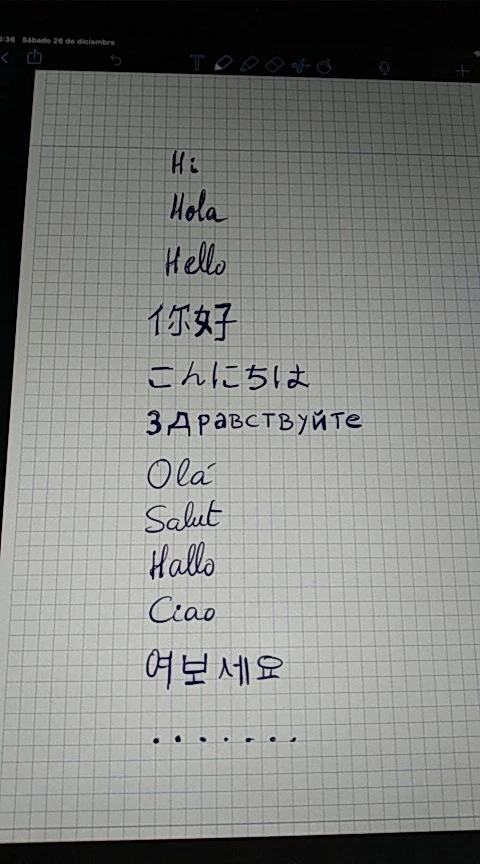 0:36 Sábado 26 de diciembre
Hi
Hola
Hello
你好
こんにちは
Здравствуйте
Olá
Salut
Hallo
Ciao
여보세요
.......